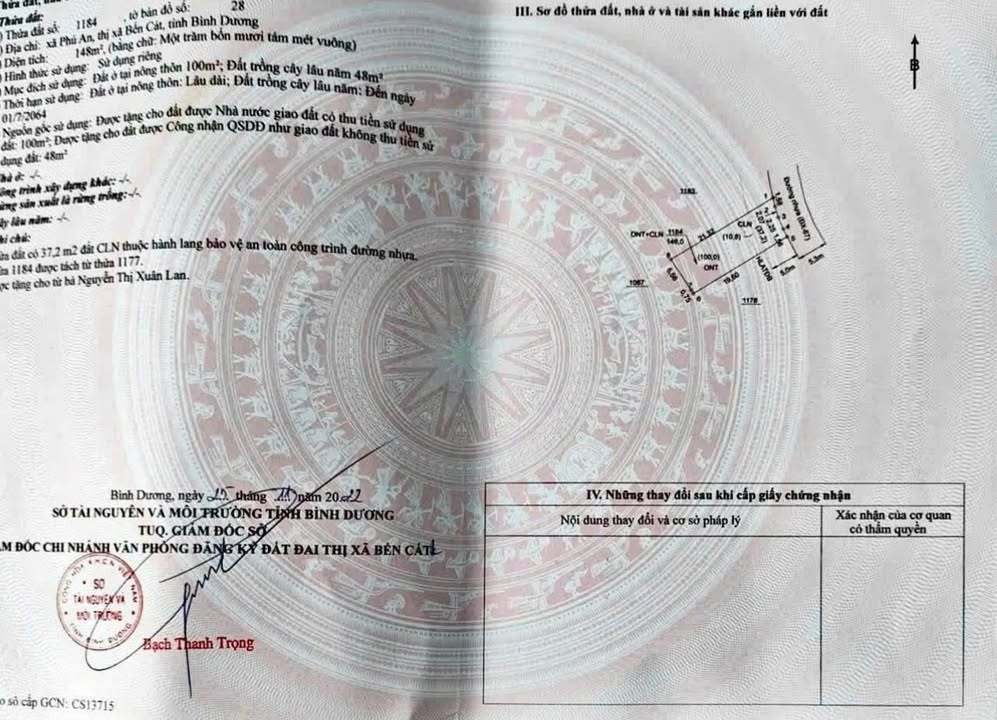 Thửa đất:
Thửa đất số: 1184 , tờ bản đồ số: 28
Địa chỉ: xã Phú An, thị xã Bến Cát, tỉnh Bình Dương
Diện tích: 148m², (bằng chữ: Một trăm bốn mươi tám mét vuông)
Hình thức sử dụng: Sử dụng riêng
Mục đích sử dụng: Đất ở tại nông thôn 100m²; Đất trồng cây lâu năm 48m²
Thời hạn sử dụng: Đất ở tại nông thôn: Lâu dài; Đất trồng cây lâu năm: Đến ngày
01/7/2064
Nguồn gốc sử dụng: Được tặng cho đất được Nhà nước giao đất có thu tiền sử dụng
đất: 100m²; Được tặng cho đất được Công nhận QSDĐ như giao đất không thu tiền sử
dụng đất: 48m²
hà ở: -/-
ông trình xây dựng khác: -/-
ừng sản xuất là rừng trồng: -/-
ây lâu năm: -/-
hi chú:
ửa đất có 37,2 m2 đất CLN thuộc hành lang bảo vệ an toàn công trình đường nhựa.
ửa 1184 được tách từ thửa 1177.
ợc tặng cho từ bà Nguyễn Thị Xuân Lan.
Bình Dương, ngày 25 tháng 11 năm 2022
SỞ TÀI NGUYÊN VÀ MÔI TRƯỜNG TỈNH BÌNH DƯƠNG
TUQ. GIÁM ĐỐC SỞ
ÁM ĐỐC CHI NHÁNH VĂN PHÒNG ĐĂNG KÝ ĐẤT ĐAI THỊ XÃ BẾN CÁT
SỞ
TÀI NGUYÊN VÀ
MÔI TRƯỜNG
TỈNH BÌNH DƯƠNG
Bạch Thanh Trọng
o sổ cấp GCN: CS13715
III. Sơ đồ thửa đất, nhà ở và tài sản khác gắn liền với đất
B
1183
Đường nhựa (ĐX-87)
ONT+CLN 1184
148,0
21,52
CLN
(10,8)
(37,2)
(100,0)
ONT
HLATĐB
6,66
0,75
19,60
5,0m
5,3m
1067
1178
IV. Những thay đổi sau khi cấp giấy chứng nhận
Nội dung thay đổi và cơ sở pháp lý
Xác nhận của cơ quan
có thẩm quyền